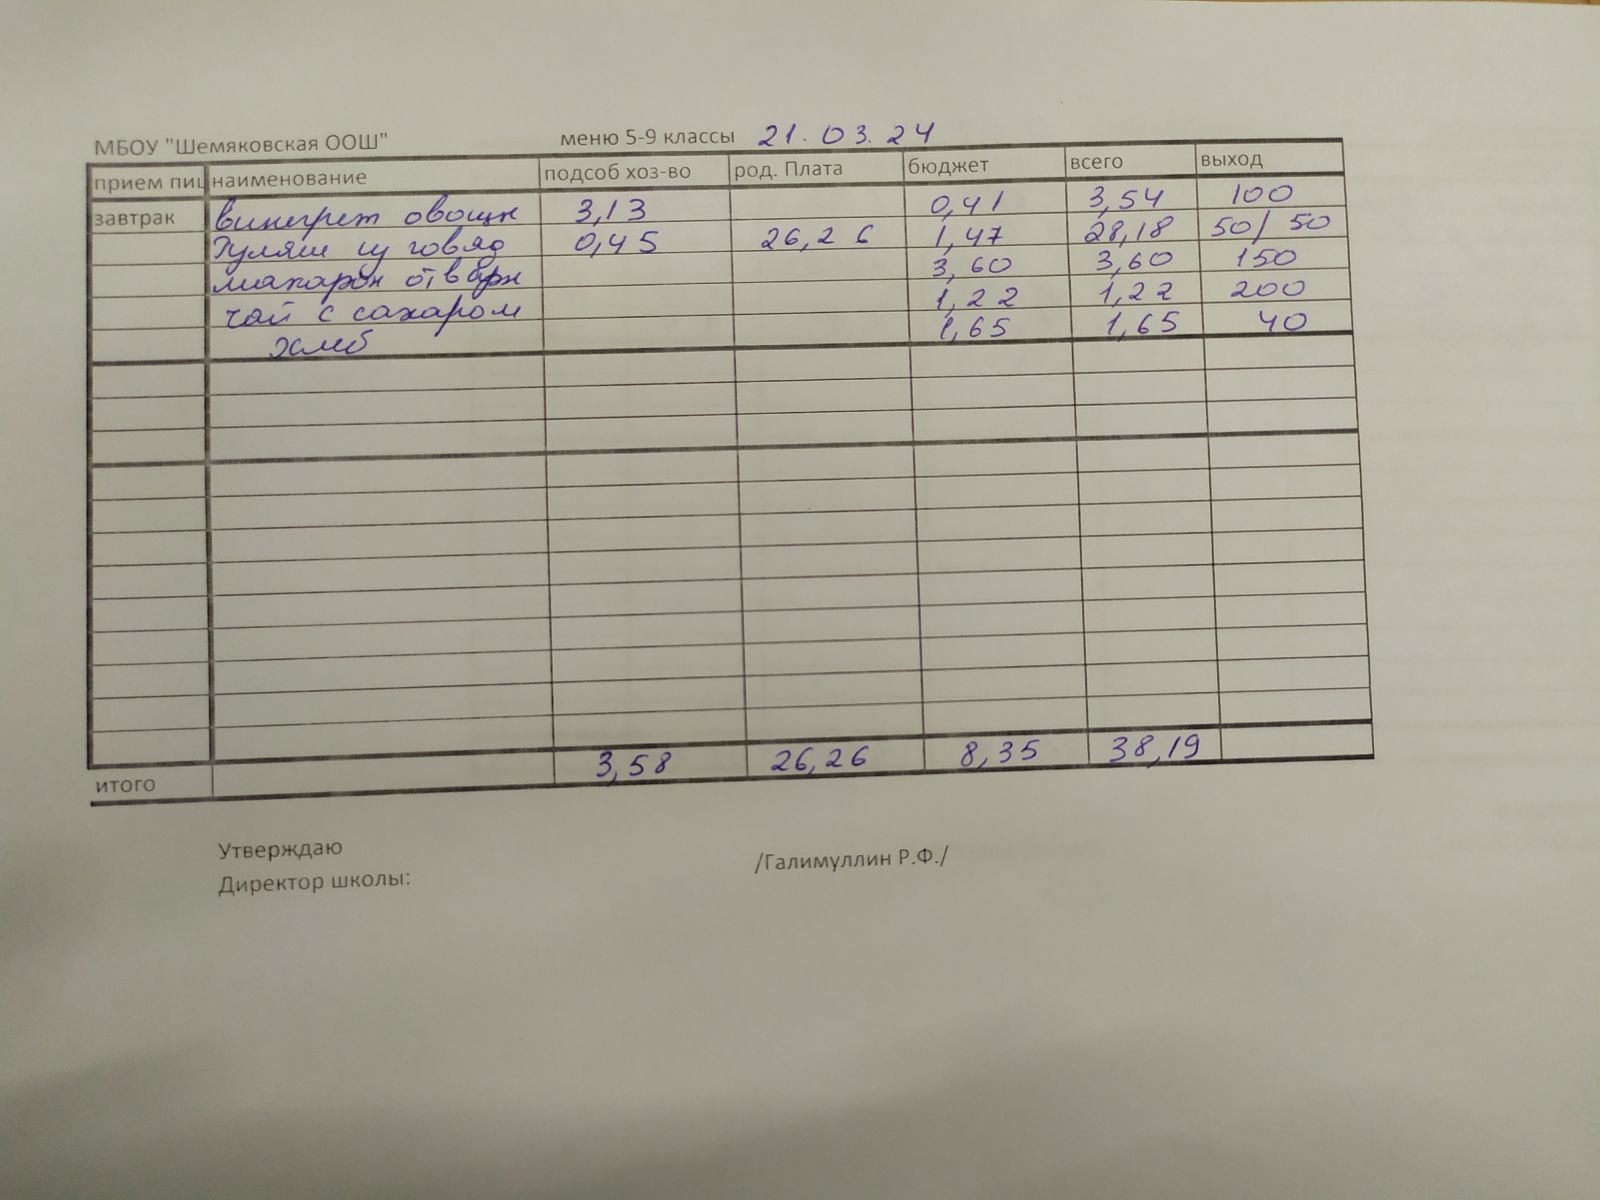 МБОУ "Шемяковская ООШ" меню 5-9 классы 21.03.24
прием пищ наименование подсоб хоз-во род. Плата бюджет всего выход
завтрак винегрет овощн 3,13 0,41 3,54 100
Гуляш из говяд 0,45 26,26 1,47 28,18 50/50
макарон отварн 3,60 3,60 150
чай с сахаром 1,22 1,22 200
хлеб 1,65 1,65 40
итого 3,58 26,26 8,35 38,19
Утверждаю
Директор школы: /Галимуллин Р.Ф./